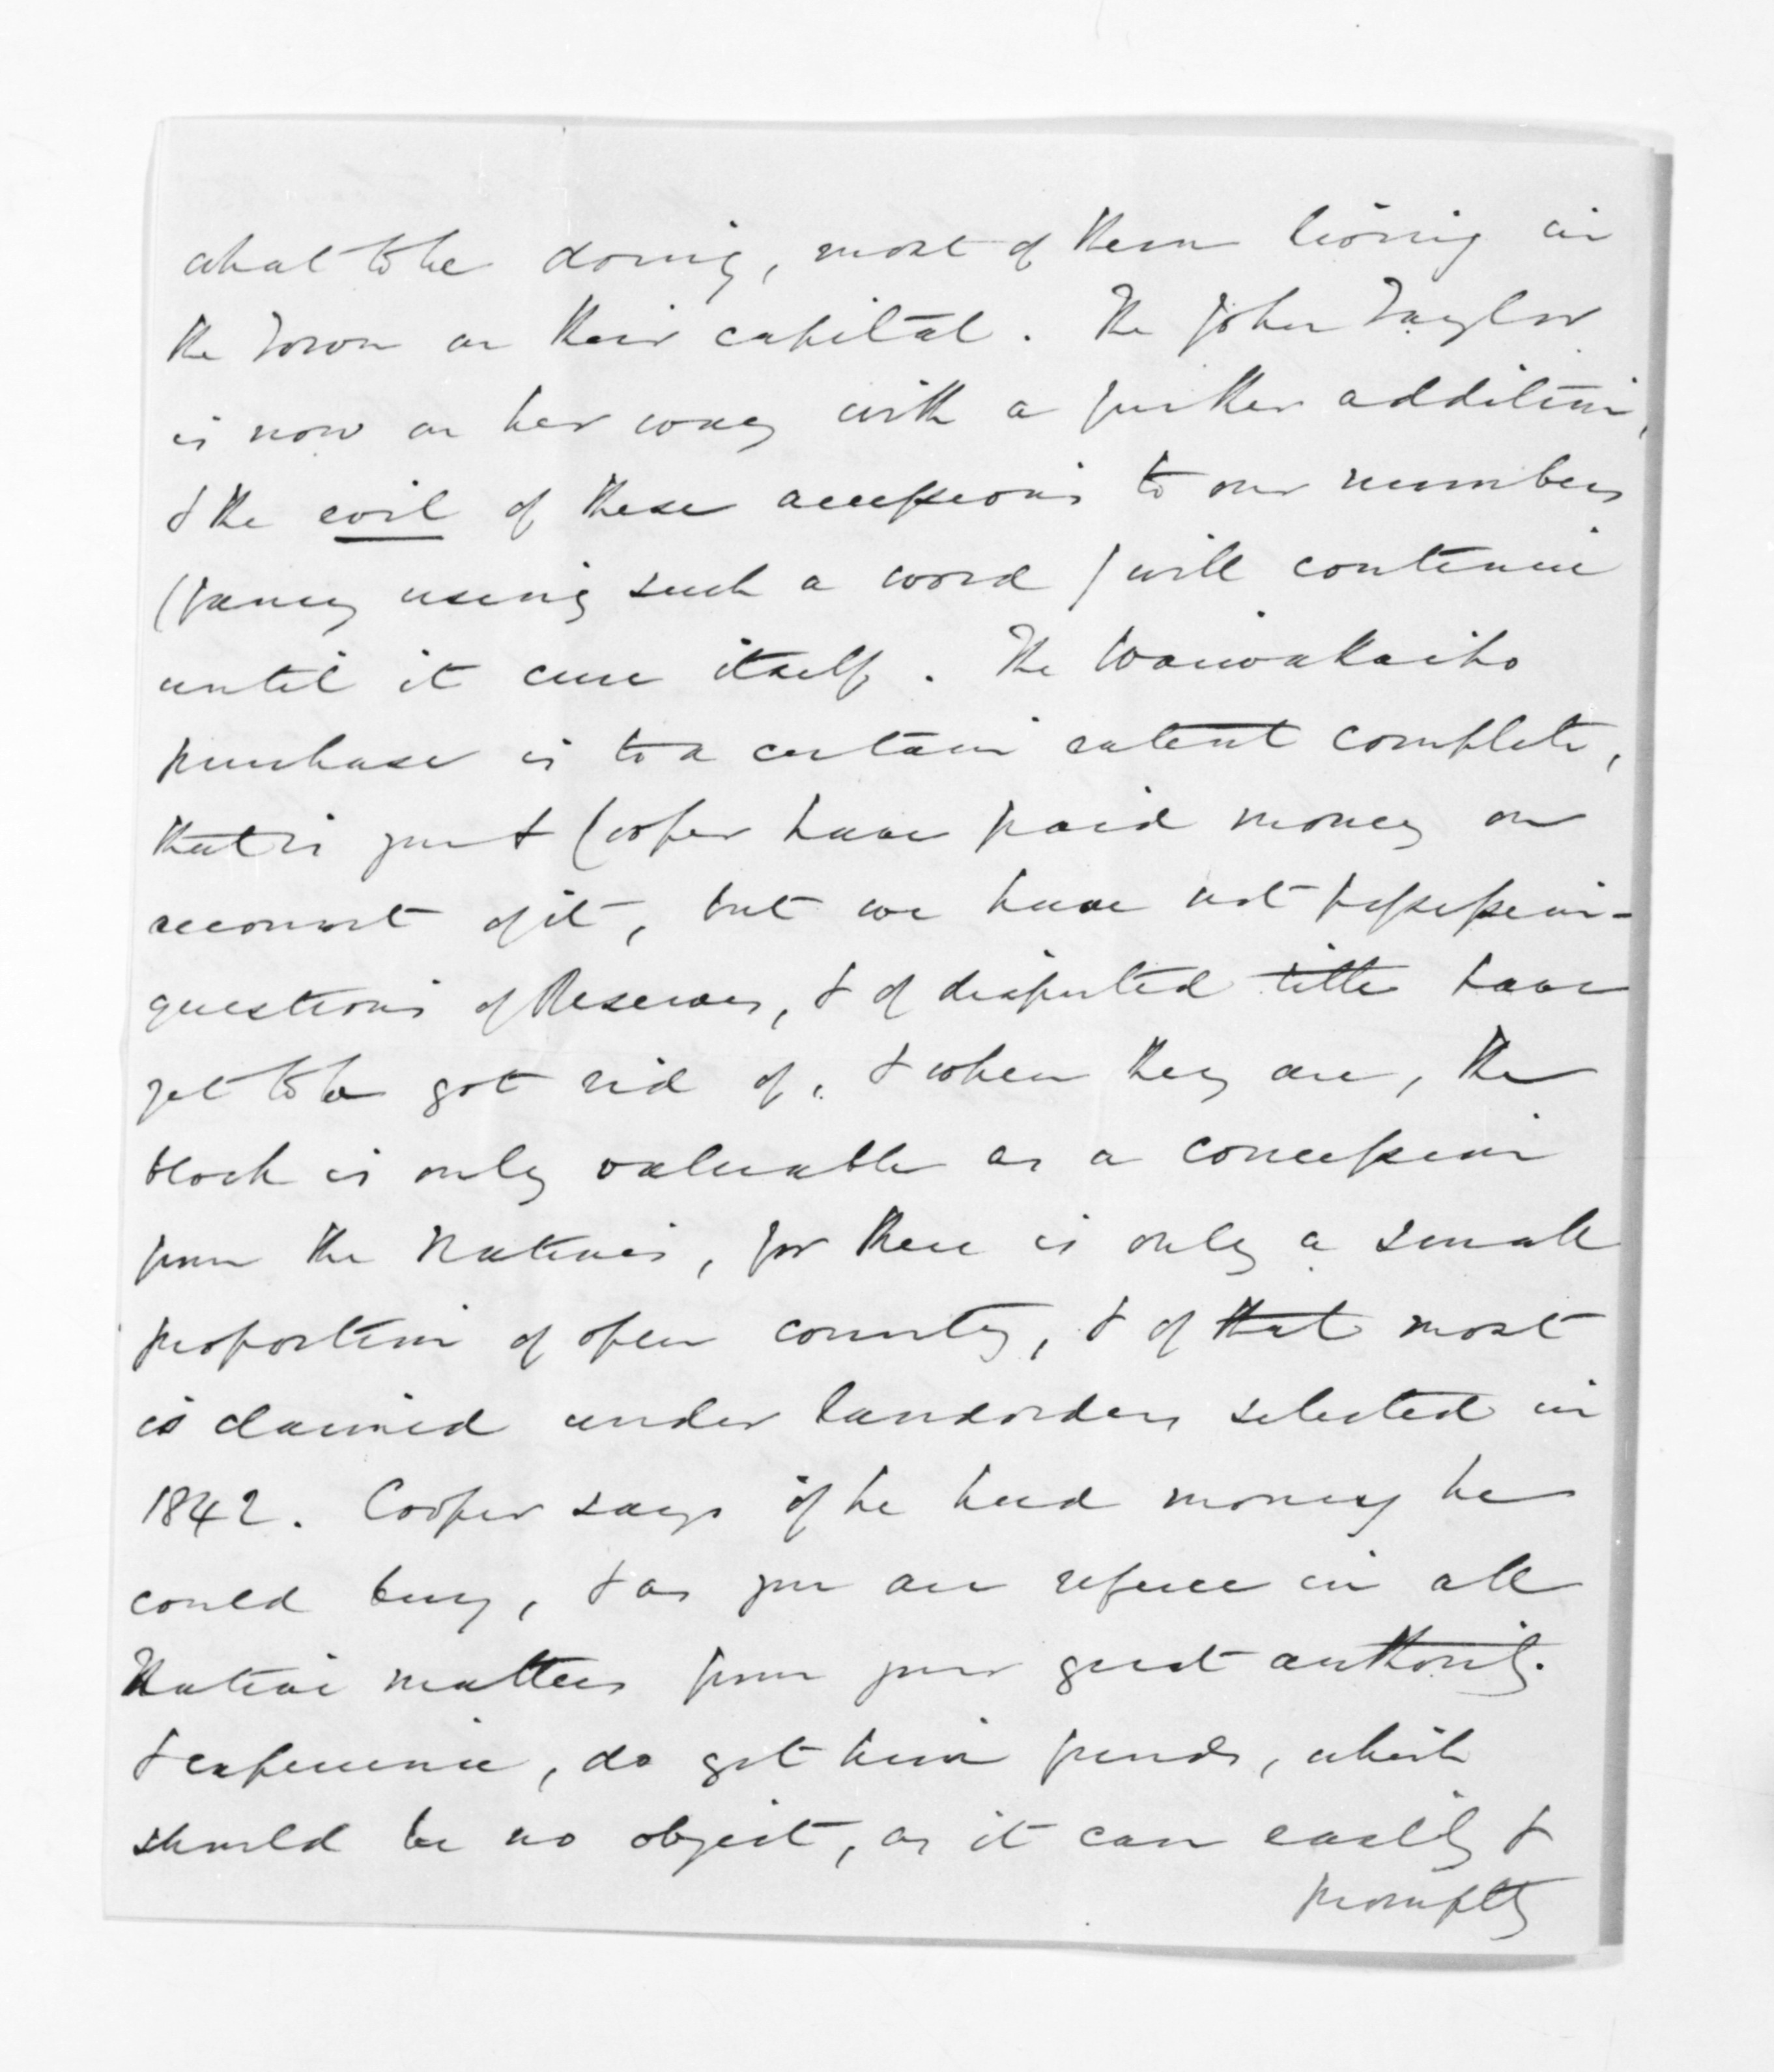 what to be doing, most of them living in
the Town on their capital. The John Taylor
is now on her way with a further addition,
& the evil of these accessions to our numbers
(fancy using such a word) will continue
until it cure itself. The Waiwakaiho
purchase is to a certain extent complete,
that is you & Cooper have paid money on
account of it, but we have not possession -
questions of Reserves, & of disputed title have
yet to be got rid of, & when they are, the
block is only valuable as a concession
from the Natives, for there is only a small
proportion of open country, & of that most
is claimed under landorders selected in
1842. Cooper says if he had money he
could buy, & as you are referee in all
Native matters from your great authority
& experience, do get him funds, which
should be no object, as it can easily &
promptly